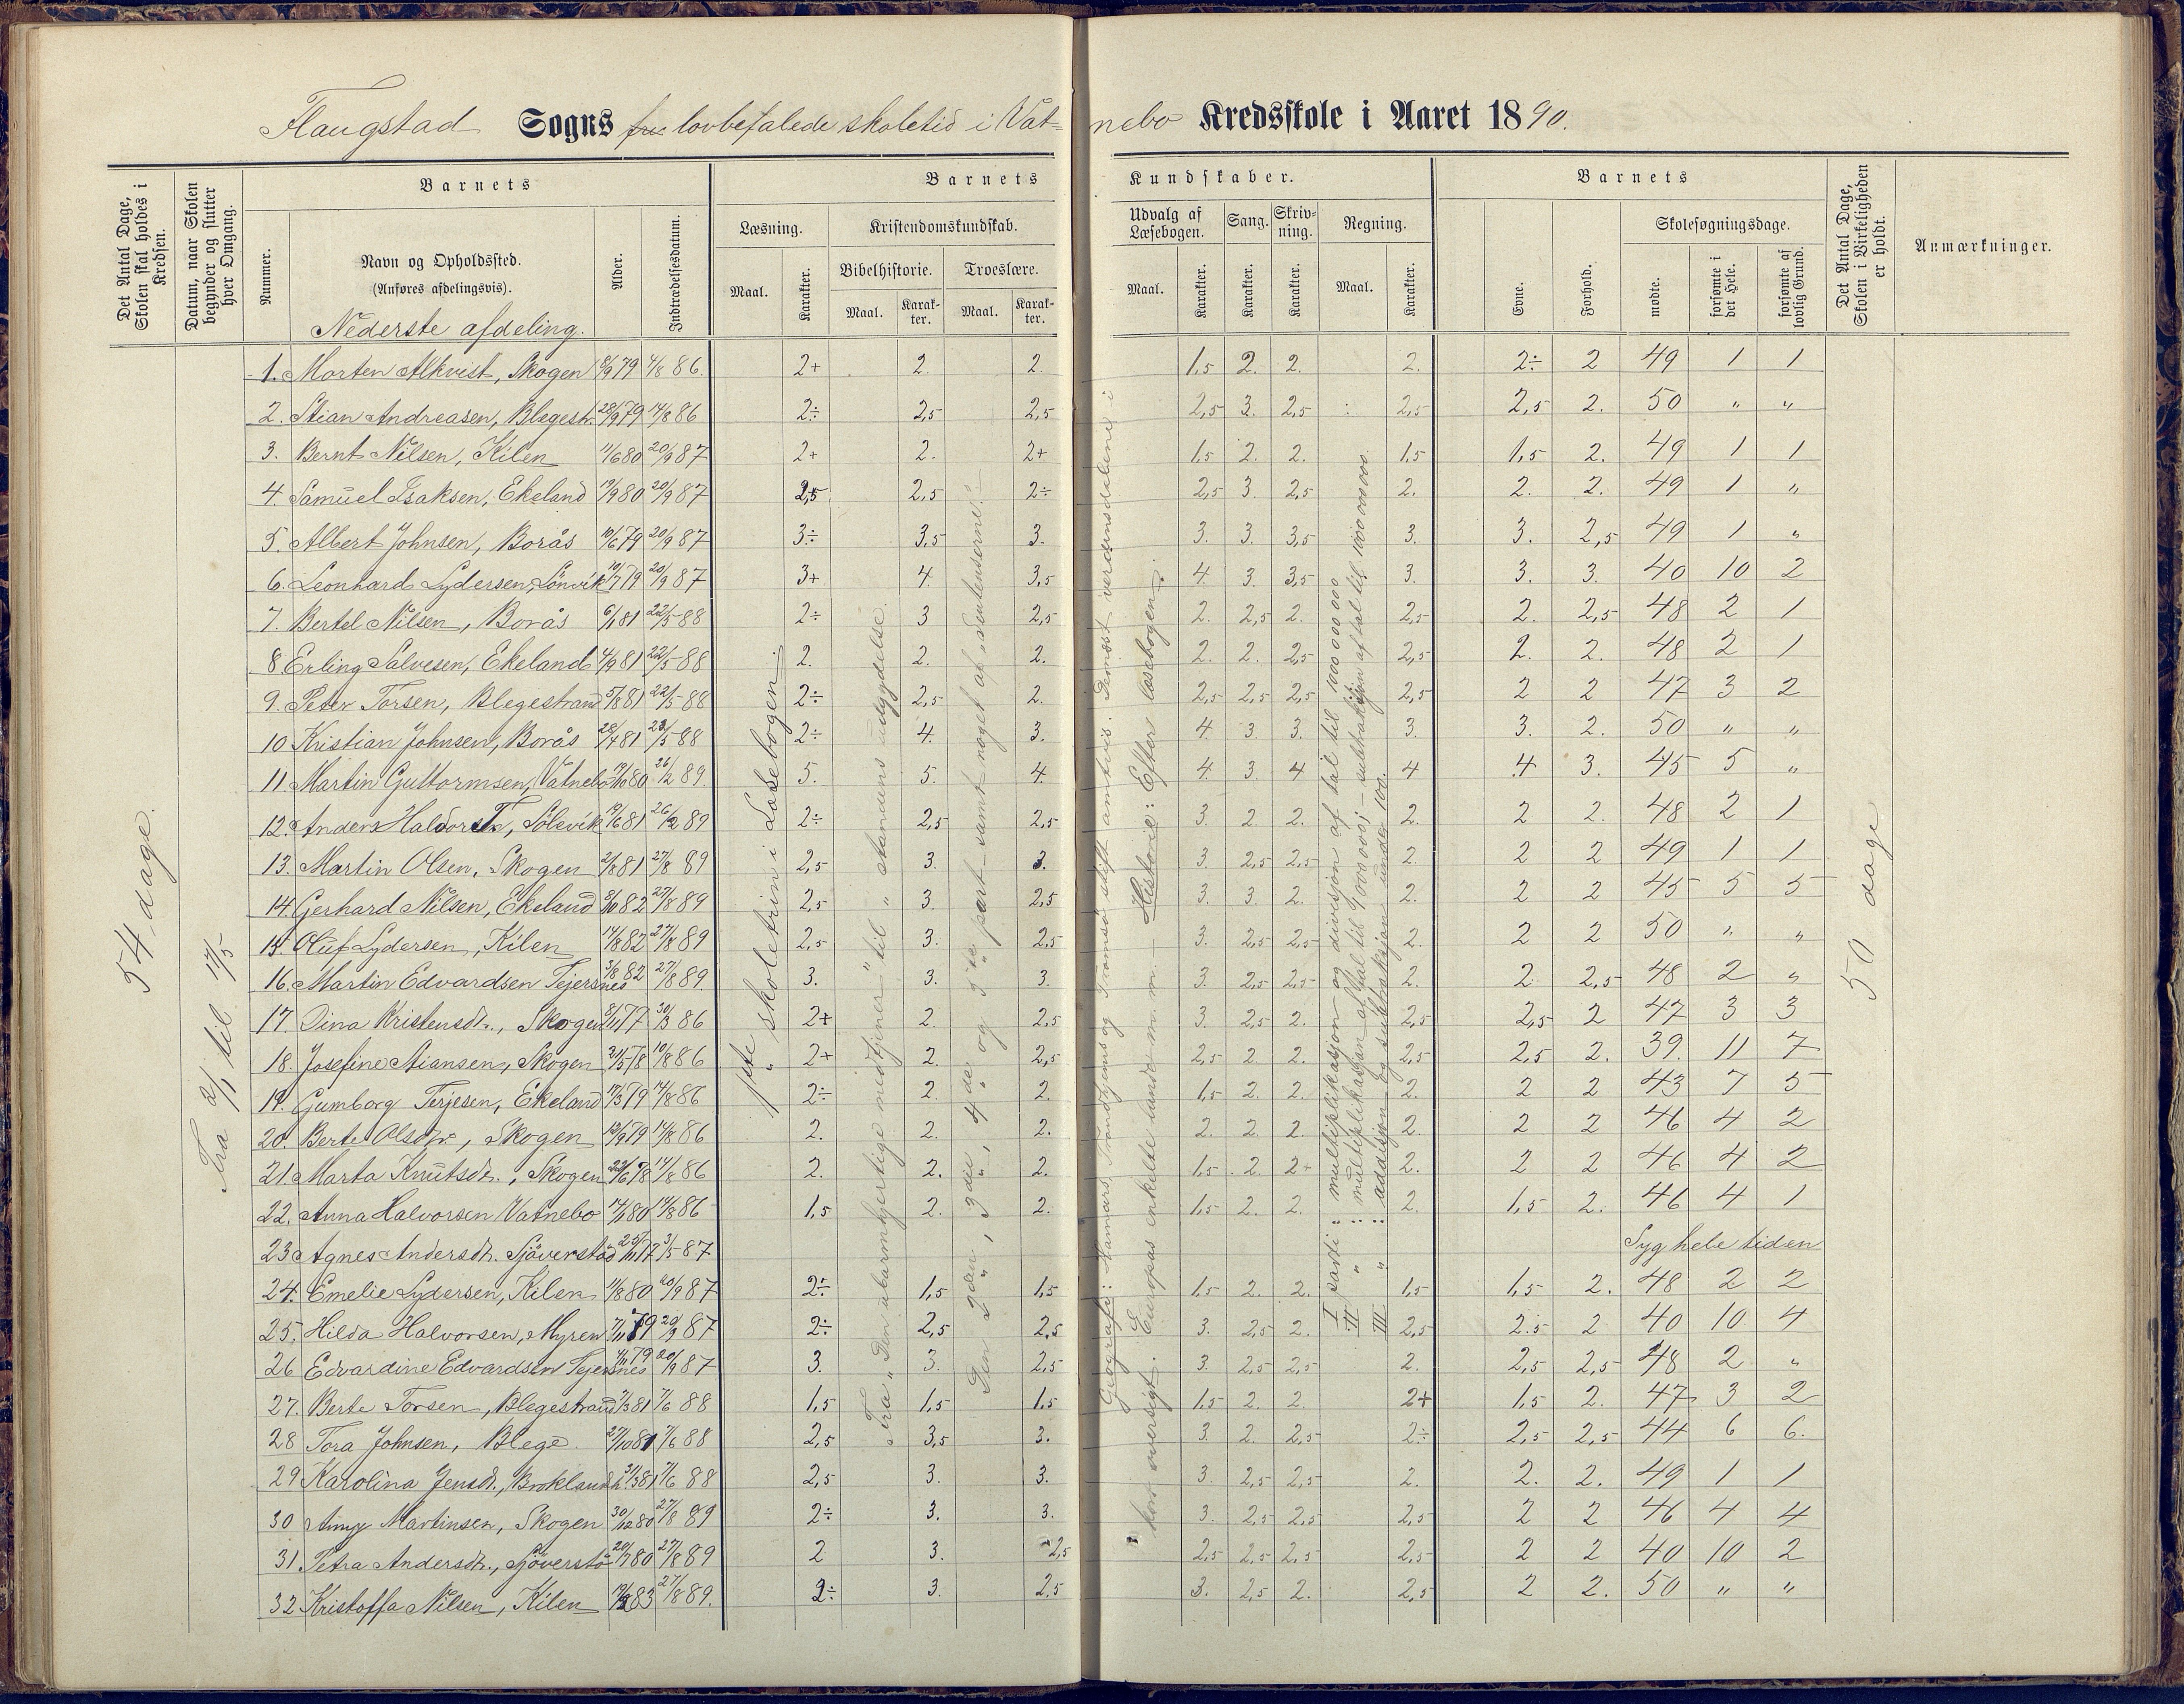 Flaugstad Sogns lovbefalede skoletid i Vatnebo Kredsskole i Aaret 1890.
Det Antal Dage, Skolen skal holdes i Kredsen.
Datum, naar Skolen begynder og slutter hver Omgang.
Barnets
Nummer.
Navn og Opholdssted.
(Anføres afdelingsvis).
Nederste afdeling.
Alder.
Indtrædelsesdatum.
Barnets Kundskaber.
Læsning.
Maal.
Karakter.
Kristendomskundskab.
Bibelhistorie.
Maal.
Karakter.
Troeslære.
Maal.
Karakter.
Udvalg af Læsebogen.
Maal.
Karakter.
Sang.
Karakter.
Skrivning.
Karakter.
Regning.
Maal.
Karakter.
Barnets
Evne.
Forhold.
Skolesøgningsdage.
mødte.
forsømte i det Hele.
forsømte af lovlig Grund.
Det Antal Dage, Skolen i Virkeligheden er holdt.
Anmærkninger.
54 dage.
Fra 2/1 til 17/5
1ste skoletrin i Læsebogen
Fra "Den ubarmhjertige medtjener" til "standens udgydelse."
Den 2den, 3die, 4de og 5te part samt noget af
Historie: Efter læsebogen.
Europas enkelte lande m. m.
kort oversigt.
I parti: multiplikasjon og divisjon af tal til 1000 000 000
II " : multiplikasjon af tal til 1000 000; subtraksjon af tal til 1000 000 000.
III " : addisjon og subtraksjon under 100.
50 dage
1. Morten Alkvist, Skogen 18/9 79 4/8 86. 2+ 2. 2. 1,5 2. 2. 2. 2÷ 2 49 1 1
2. Stian Andreasen, Blegestr. 28/9 79 14/8 86 2÷ 2,5 2,5 2,5 3. 2,5 2,5 2,5 2. 50 " "
3. Bernt Nilsen, Kilen 11/6 80 20/9 87 2+ 2. 2+ 1,5 2. 2. 1,5 1,5 2. 49 1 1
4. Samuel Isaksen, Ekeland 19/9 80 20/9 87 2,5 2,5 2÷ 2,5 3. 2,5 2. 2. 2. 49 1 "
5. Albert Johnsen, Borås 10/6 79 20/9 87 3÷ 3,5 3. 3. 3. 3,5 3. 3. 2,5 49 1 "
6. Leonhard Lydersen, Lønvik 10/7 79 20/9 87 3+ 4. 3,5 4. 3. 3,5 3. 3. 3. 40 10 2
7. Bertel Nilsen, Borås 6/1 81 22/5 88 2÷ 3 2,5 2. 2,5 2. 2,5 2. 2,5 48 2 1
8 Erling Salvesen, Ekeland 4/9 81 22/5 88 2. 2. 2. 2. 2. 2,5 2,5 2. 2. 48 2 1
9. Peter Torsen, Blegestrand 5/8 81 22/5 88 2÷ 2,5 2. 2,5 2,5 2,5 2,5 2 2 47 3 2
10 Kristian Johnsen, Borås 28/4 81 23/5 88 2÷ 4. 3. 4. 3. 3. 3. 3. 2. 50 " "
11. Martin Guttormsen, Vatnebo 19/10 80 26/2 89. 5. 5. 4. 4. 3. 4 4 4 3. 45 5 "
12. Anders Halvorsen, Sølevik 19/6 81 26/2 89 2÷ 2,5 2,5 3. 2 2. 2. 2 2. 48 2 1
13. Martin Olsen, Skogen 2/8 81 27/8 89 2,5 3. 3. 3. 2,5 2,5 2. 2 2 49 1 1
14. Gerhard Nilsen, Ekeland 8/10 82 27/8 89 2,5 3. 2,5 3. 3. 2. 2. 2 2 45 5 5
15. Oluf Lydersen, Kilen 14/8 82 27/8 89 2,5 3. 2,5 3. 2,5 2,5 2. 2 2 50 " "
16. Martin Edvardsen Tejersnes 3/8 82 27/8 89. 3. 3. 3. 3. 2,5 2,5 2. 2. 2,5 48 2 "
17. Dina Kristensdr., Skogen 8/11 77 30/3 86 2+ 2. 2,5 3. 2,5 2. 2,5 2,5 2 47 3 3
18. Josefine Stiansen, Skogen 21/5 78 10/8 86 2+ 2. 2,5 2,5 2. 2. 2,5 2,5 2. 39. 11 7
19. Gumborg Terjesen, Ekeland 17/3 79 14/8 86 2÷ 2. 2. 1,5 2. 2. 2. 2 2 43 7 5
20. Berte Olsdr., Skogen 12/9 79 14/8 86 2. 2. 2. 2. 2. 2. 2. 2 2 46 4 2
21. Marta Knutsdr., Skogen 22/6 78 14/8 86 2. 2. 2. 1,5 2. 2+ 2. 2 2 46 4 2
22. Anna Halvorsen Vatnebo 14/1 80 14/8 86 1,5 2. 2. 1,5 2. 2. 2. 1,5 2. 46 4 1
23 Agnes Andersdr. Sjøverstød 25/11 77 3/5 87 Syg hele tiden
24. Emelie Lydersen, Kilen 11/8 80 20/9 87 2÷ 1,5 1,5 1,5 2. 2. 1,5 1,5 2. 48 2 2
25. Hilda Halvorsen, Myren 7/11 79 20/9 87 2÷ 2,5 2,5 3. 2,5 2. 2,5 2,5 2 40 10 4
26 Edvardine Edvardsen Tejersnes 4/11 79 20/9 87 3. 3. 2,5 3. 2,5 2,5 2. 2,5 2,5 48 2 "
27. Berte Torsen, Blegestrand 7/3 81 7/6 88 1,5 1,5 1,5 1,5 2. 2. 2+ 1,5 2. 47 3 2
28 Tora Johnsen, Blege. 27/10 81 7/6 88 2,5 3,5 3. 3. 2. 2,5 2÷ 2,5 2,5 44 6 6.
29 Karolina Jensdr., Brokland 21/3 81 7/6 88 2,5 3. 3. 3. 2,5 2,5 2. 2. 2. 49 1 1
30 Amy Martinsen, Skogen 30/12 80 27/8 89 2÷ 3. 3. 3. 2,5 2,5 2,5 2 2 46 4 4
31 Petra Andersdr., Sjøverstø 20/7 80 27/8 89 2 3. 2,5 2,5 2,5 2,5 2,5 2 2 40 10 2
32 Kristoffa Nilsen, Kilen 19/2 83 27/8 89. 2÷ 3. 2,5 3. 2,5 2. 2,5 2 2. 50 " "